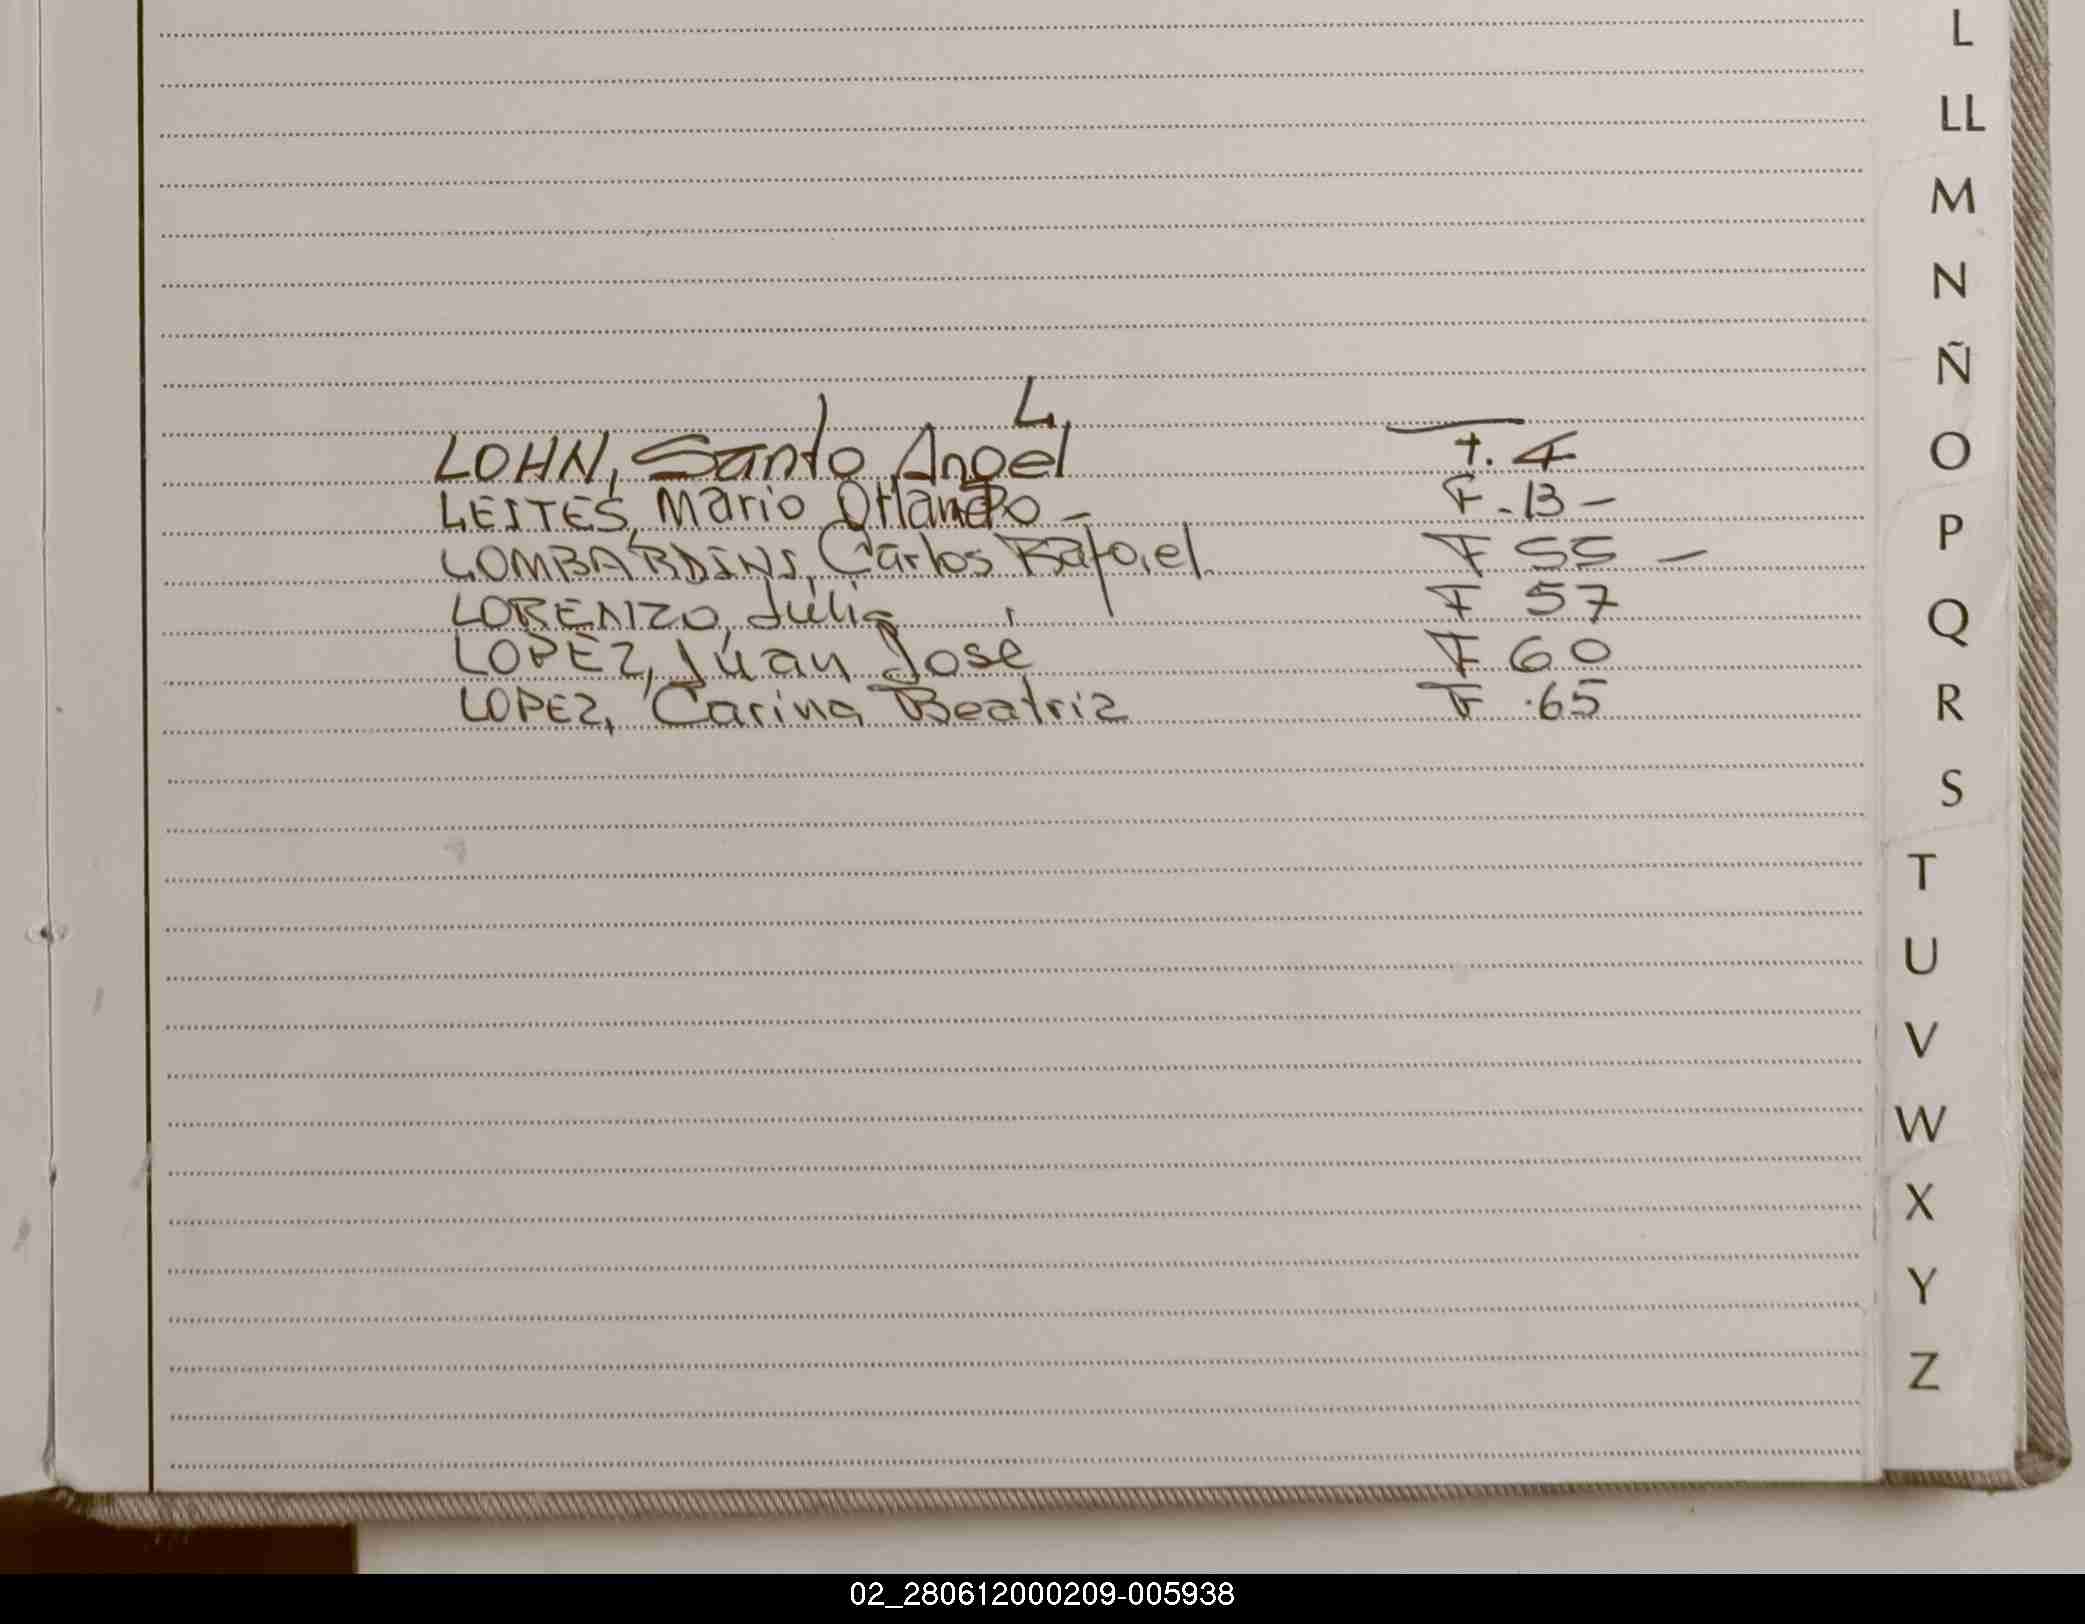 L
LOHN, Santo Angel F. 4
LEITES, Mario Orlando - F. 13 -
LOMBARDINI, Carlos Rafael. F 55 -
LORENZO, Julia F 57
LOPEZ, Juan José F 60
LOPEZ, Carina Beatriz F .65
L
LL
M
N
Ñ
O
P
Q
R
S
T
U
V
W
X
Y
Z
02_280612000209-005938